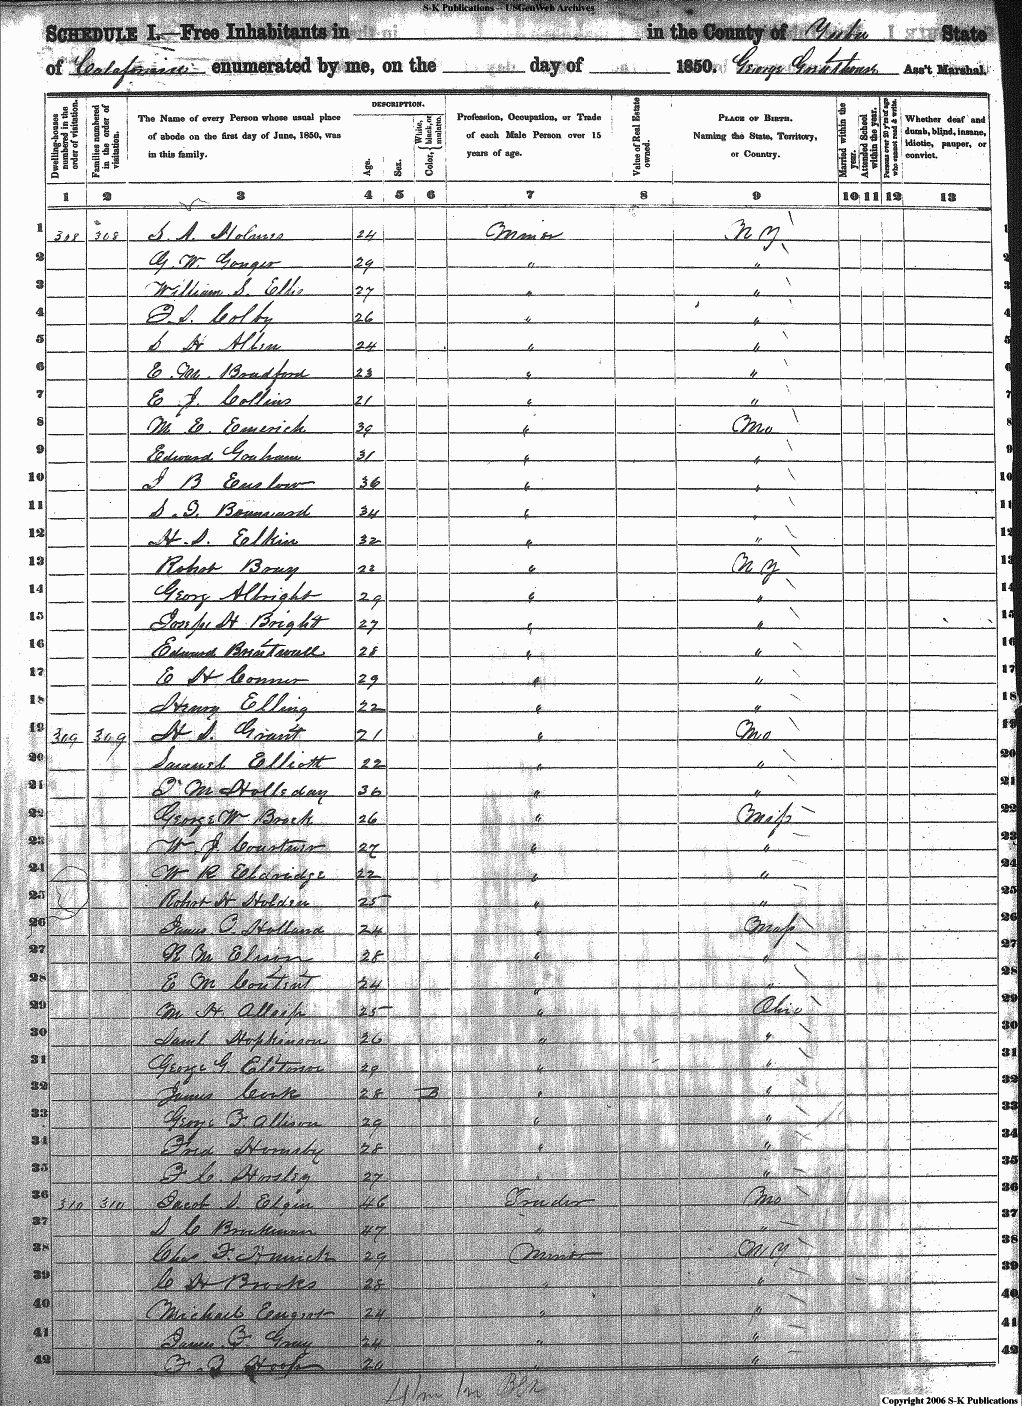 S-K Publications - USGenWeb Archives
SCHEDULE I.—Free Inhabitants in in the County of Yuba State
of California enumerated by me, on the day of 1850. George Ass't Marshal.
Dwelling-houses numbered in the order of visitation.
Families numbered in the order of visitation.
The Name of every Person whose usual place of abode on the first day of June, 1850, was in this family.
DESCRIPTION.
Age.
Sex.
Color, White, black, or mulatto.
Profession, Occupation, or Trade of each Male Person over 15 years of age.
Value of Real Estate owned.
PLACE OF BIRTH. Naming the State, Territory, or Country.
Married within the year.
Attended School within the year.
Persons over 20 y'rs of age who cannot read & write.
Whether deaf and dumb, blind, insane, idiotic, pauper, or convict.
1 2 3 4 5 6 7 8 9 10 11 12 13
1 308 308 S. A. Holmes 24 Miner N Y 1
2 G. W. Conger 29 " " 2
3 William S. Ellis 27 " " 3
4 S. Colby 26 " " 4
5 S H Allen 24 " " 5
6 E. M. Bradford 23 " " 6
7 E J. Collins 21 " " 7
8 M. E. Emerick 39 " Mo 8
9 Edward Graham 31 " " 9
10 J B Enslow 36 " " 10
11 S. 34 " " 11
12 H. S. Elkin 32 " " 12
13 Robert Bray 22 " N Y 13
14 Georg Albright 29 " " 14
15 Joseph H Bright 27 " " 15
16 Edward 28 " " 16
17 E H Conner 29 " " 17
18 Henry Elling 22 " " 18
19 309 309 H S. Grant 21 " Mo 19
20 Samuel Elliott 22 " " 20
21 M Holleday 30 " " 21
22 George W Brock 26 " Misp 22
23 W J 27 " " 23
24 W R Eldridge 22 " " 24
25 Robert H Holden 25 " " 25
26 James C. Holland 24 " Mass 26
27 R M Elison 28 " " 27
28 E M 24 " " 28
29 M H. Allsop 25 " Ohio 29
30 Saml Hopkinson 26 " " 30
31 George G. 29 " " 31
32 James Cook 28 B " " 32
33 George F Allison 29 " " 33
34 Fred Hornsby 28 " " 34
35 F C. Horsley 27 " " 35
36 310 310 Jacob S. Elgin 46 Trader Mo 36
37 S C Brockman 47 " " 37
38 Chas F. 29 Miner N Y 38
39 C H Brooks 28 " " 39
40 Michael 24 " " 40
41 James F. Gray 24 " " 41
42 F Hoop 20 " " 42
Copyright 2006 S-K Publications